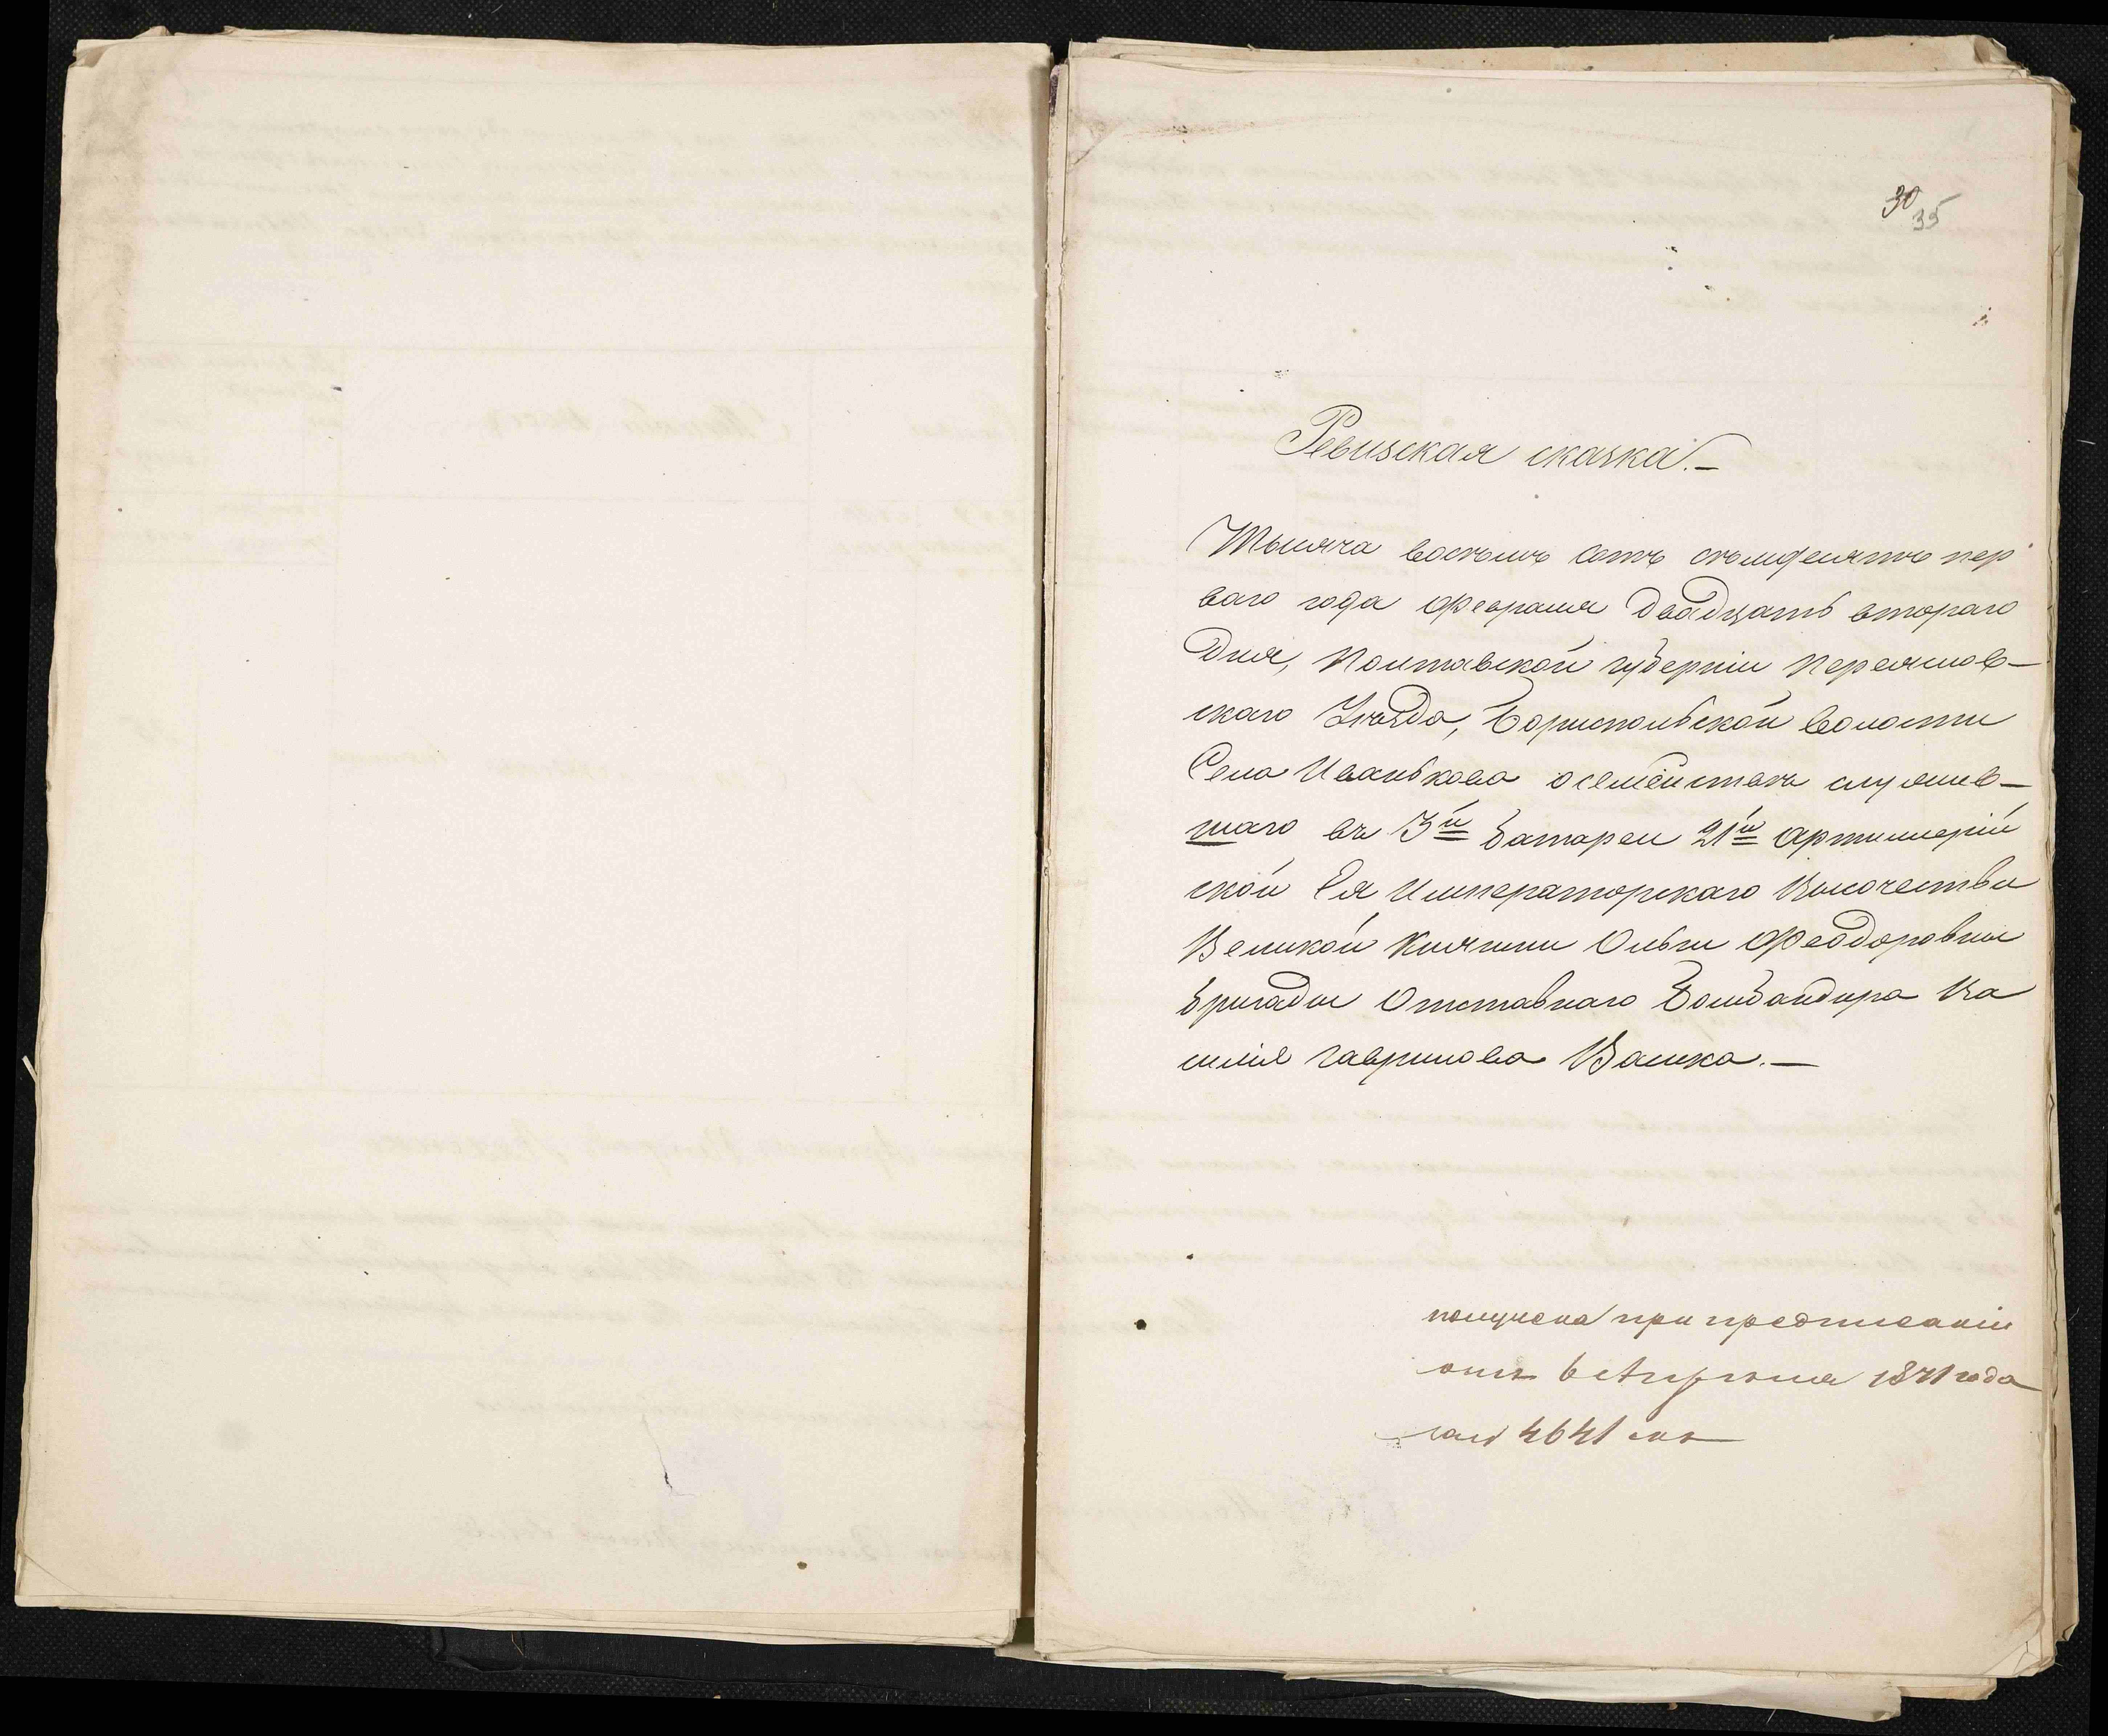 30
35
Ревизская сказка.—
Тысяча восемь сотъ семьдесятъ пер
ваго года Февраля двадцать втораго
дня, Полтавской губерніи Переяслов—
скаго Уѣзда, Бориспольской волости
Села Иванькова о семействѣ служив—
шаго въ 3й батареи 21й Артиллерій
ской Ея Императорскаго Высочества
Великой Княгини Ольги Феодоровны
бригады Отставнаго Бомбандира Ва
силія Гаврилова Вашка.—
получена при предписаніи
отъ 6 Апрѣля 1871 года
за № 4641